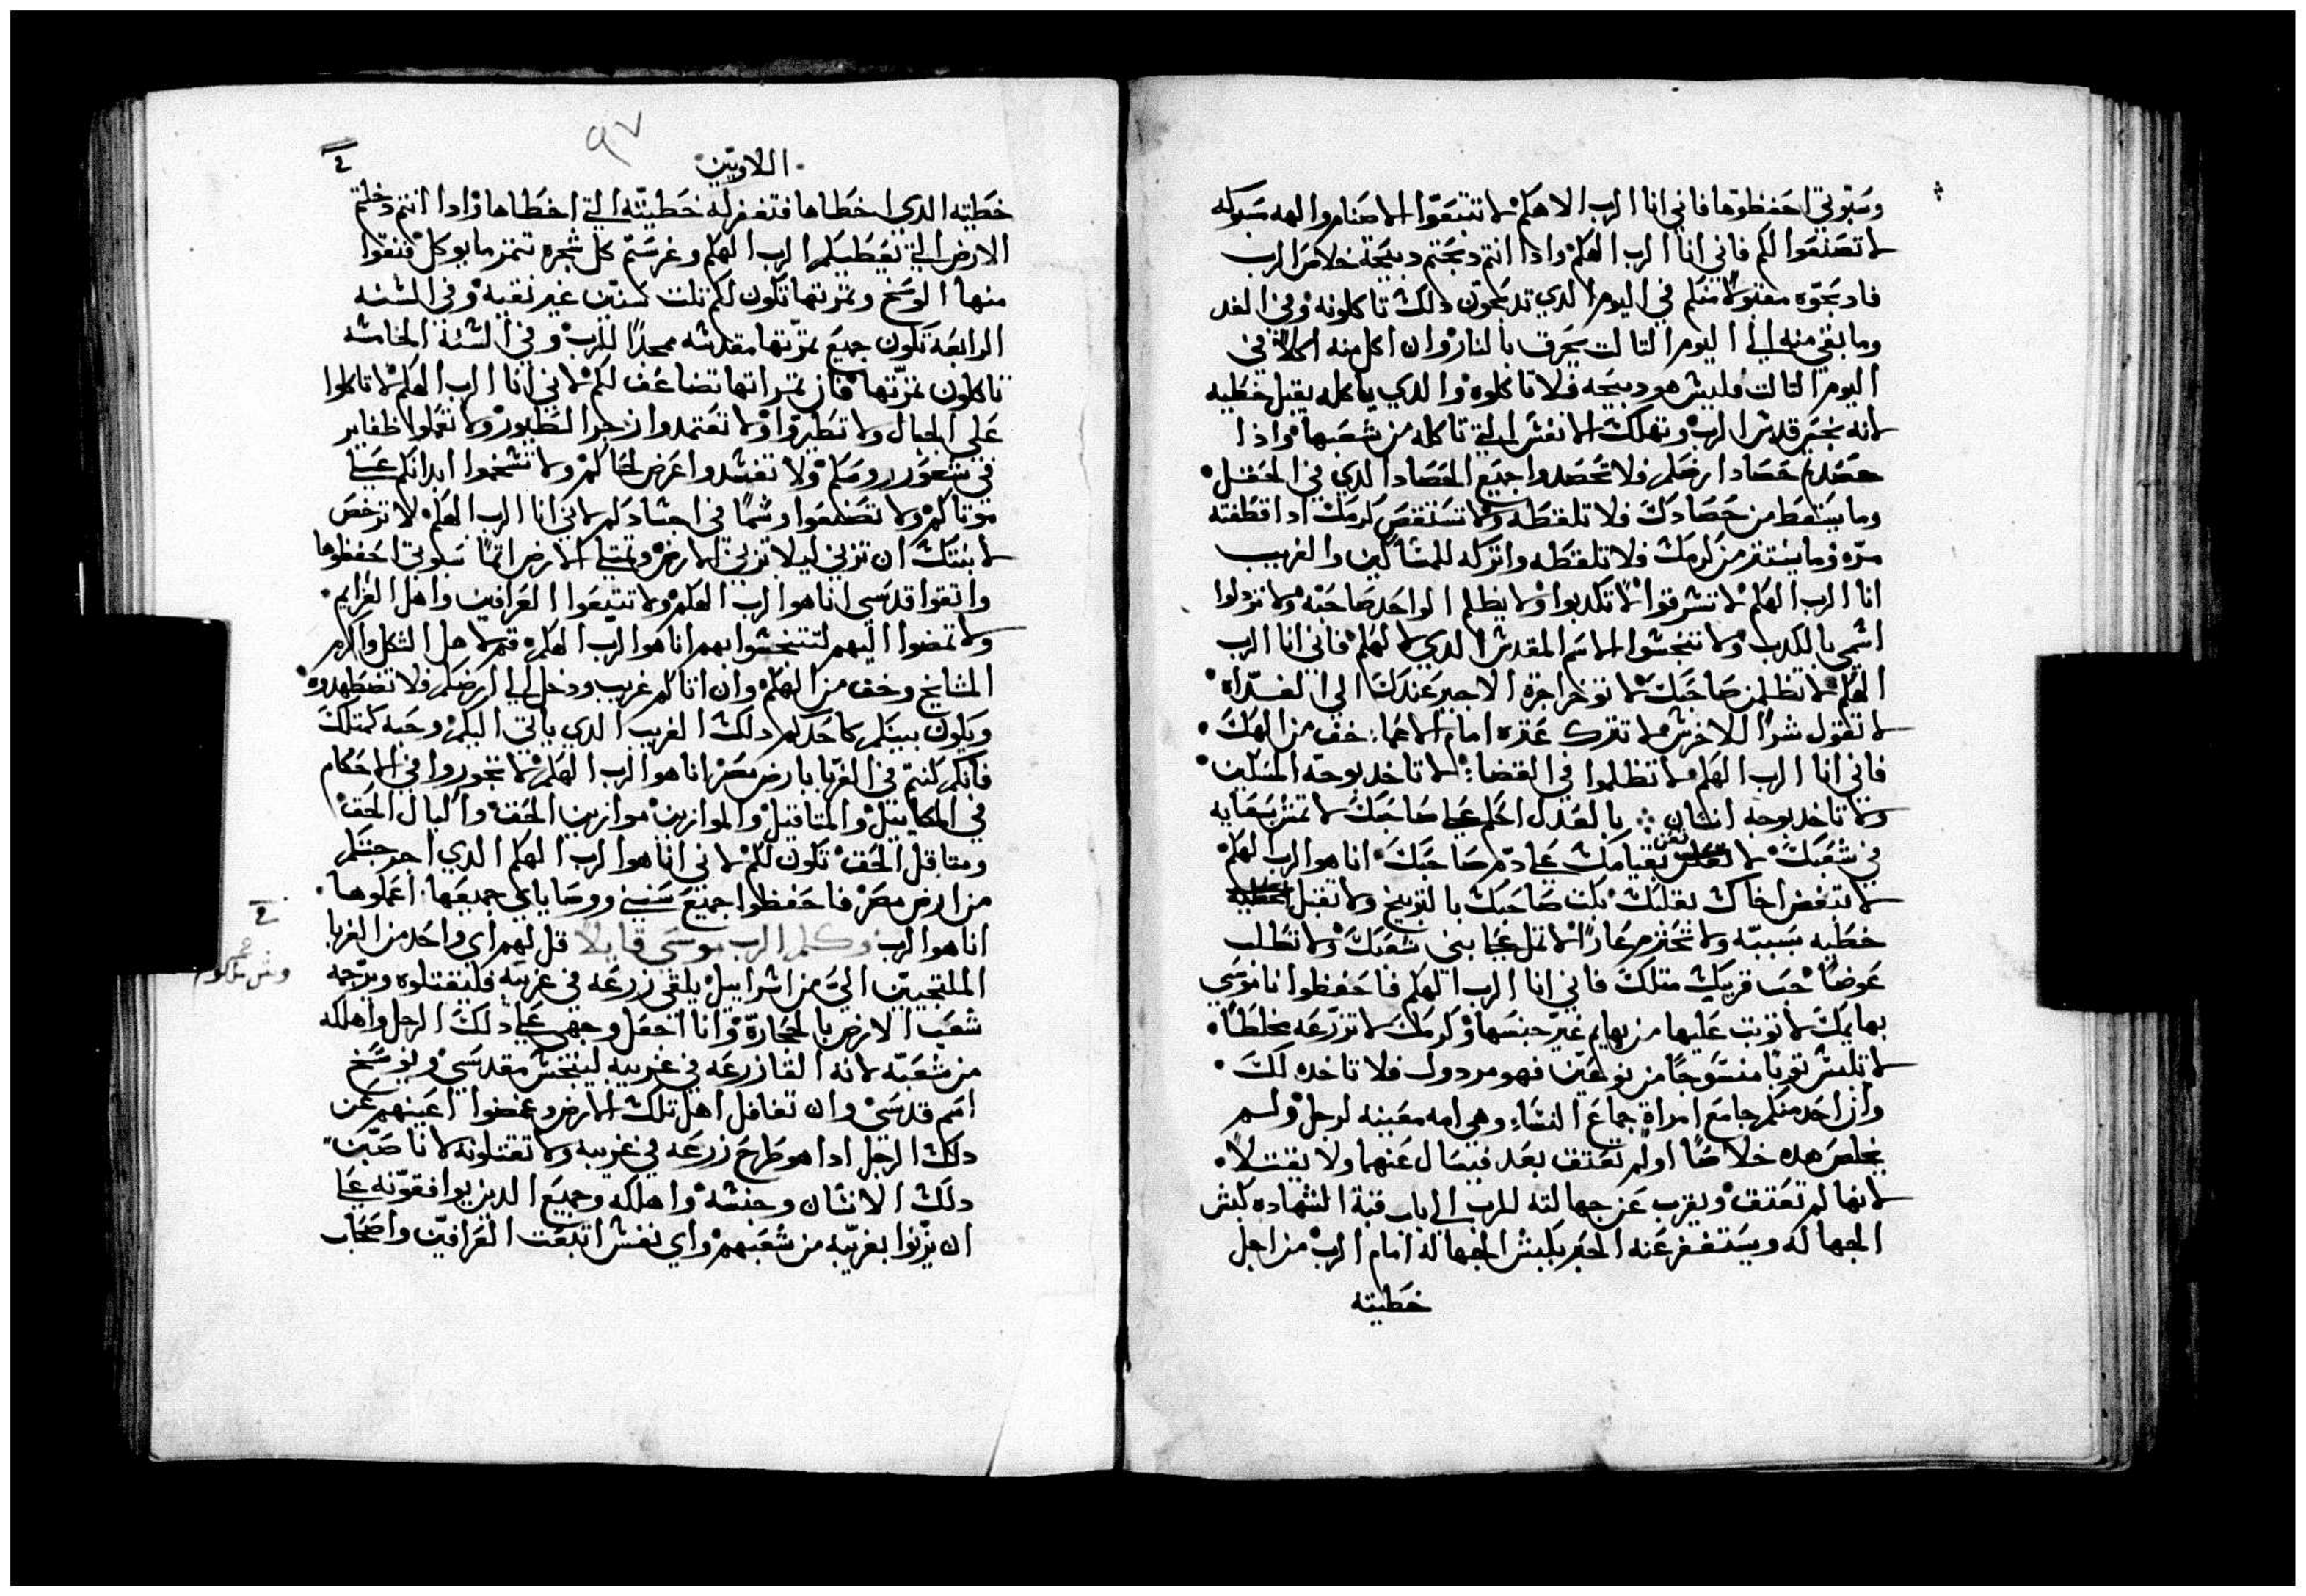 وسبوتي احفظوها فاني انا الرب الاهكم لا تتبعوا الاصنام والهه مسبوكه
لا تصنعوا لكم فاني انا الرب الهكم واذا انتم دبحتم دبيحة خلاص للرب
فادبحوه مقبولاً منكم في اليوم الدي تدبحون دلك تاكلونه وفي الغد
وما بقي منه الي اليوم التالت يحرق بالنار وان اكل منه اكلاً في
اليوم التالت فليس هو دبيحه فلا تاكلوه والدي ياكله يقبل خطيه
لانه نجس قدس الرب وتهلك الانفس التي تاكله من شعبها واذا
حصدتم حصاد ارضكم فلا تحصدوا جميع الحصاد الدي في الحقل
وما يسقط من حصادك فلا تلقطه ولا تستقص كرمك ادا قطفته
مره وما ينتتر من كرمك فلا تلقطه واتركه للمساكين والغريب
انا الرب الهكم لا تسرقوا لا تكدبوا ولا يظلم الواحد صاحبه ولا
اسمي بالكدب ولا تنجسوا الاسم المقدس الدي لالهكم فاني انا الرب
الهكم لا تظلمن صاحبك لا توخر اجرة الاجير عندك الي الغداه
لا تقول شراً للاخرس لا تترك عتره امام الاعما خف من الهك
فاني انا الرب الهكم لا تظلموا في القضا لا تاخد بوجه المسكين
ولا تاخد بوجه انسان بالعدل احكم علي صاحبك لا تمش بسعايه
في شعبك لا بقيامك علي دم صاحبك انا هو الرب الهكم
لا تبغض اخاك بقلبك بكت صاحبك بالتوبيخ ولا تقبل
خطيه بسببه ولا عاراً لا علي بني شعبك ولا تطلب
عوضاً حب قريبك متلك فاني انا الرب الهكم فاحفظوا ناموسي
بهايمك لا توتب عليها من بهايم غير جنسها وكرمك لا تزرعه مخلطاً
لا تلبس توباً منسوجاً من نوعين فهو مردول فلا تاخده لك
وان احد منكم جامع امراة جماع النساء وهي امه معينه لرجل ولم
يخلص هده خلاصاً او لم تعتق بعد فيسال عنهما ولا يقتلا
لانها لم تعتق ويقرب عن جهالته للرب الي باب قبة الشهاده كبش
الجهاله ويستغفر عنه الحبر بكبش الجهاله امام الرب من اجل
خطيته
٩٧
اللاويين
خطيته الدي اخطاها فتغفر له خطيته التي اخطاها وادا انتم دخلتم
الارض التي يعطيكم الرب الهكم وغرستم كل شجره تتمر ما يوكل فنقوا
منها الوسخ وتمرتها تكون لكم تلت سنين غير نقيه وفي السنه
الرابعه تكون جميع تمرتها مقدسه مجداً للرب وفي السنة الخامسه
تاكلون تمرتها فان تمراتها تضاعف لكم لاني انا الرب الهكم لا تاكلوا
علي الجبال ولا تطيروا ولا تعتمدوا زجر الطيور ولا تعملوا ظفاير
في شعور روسكم ولا تفسدوا عرض لحاكم ولا ابدانكم علي
موتاكم ولا تصنعوا وشماً في اجسادكم لاني انا الرب الهكم لا ترخص
لابنتك ان تزني ليلا تزني الارض وتمتلي الارض اتماً سبوتي احفظوها
واتقوا قدسي انا هو الرب الهكم ولا تتبعوا العرافين واهل العزايم
ولا تمضوا اليهم لتتنجسوا بهم انا هو الرب الهكم قم لاهل واكرم
المشايخ وخف من الهكم وان اتاكم غريب ودخل الي ارضكم فلا تضطهدوه
ويكون بينكم كاحدكم دلك الغريب الدي ياتي اليكم وحبه كمتلك
فانكم كنتم في الغربا بارض مصر انا هو الرب الهكم لا تجوروا في الاحكام
في المكاييل والمتاقيل والموازين موازين الحق والكيال الحق
ومتاقل الحق تكون لكم لاني انا هو الرب الهكم الدي اخرجتكم
من ارض مصر فاحفظوا جميع سنني ووصاياي جميعها اعملوها
انا هو الرب وكلم الرب موسي قايلاً قل لهم اي واحد من الغربا
الملتجيين الي من اسراييل يلقي زرعه في غريبه فليقتلوه ويرجمه
شعب الارض بالحجارة وانا اجعل وجهي علي دلك الرجل واهلكه
من شعبه لانه القا زرعه في غريبه لينجس مقدسي ويوسخ
اسم قدسي وان تغافل اهل تلك الارض وغمضوا اعينهم عن
دلك الرجل ادا هو طرح زرعه في غريبه ولا تقتلونه
دلك الانسان وجنسه واهلكه وجميع الدين يوافقونه علي
ان يزنوا بغريبه من شعبهم واي نفس اتبعت العرافين واصحاب